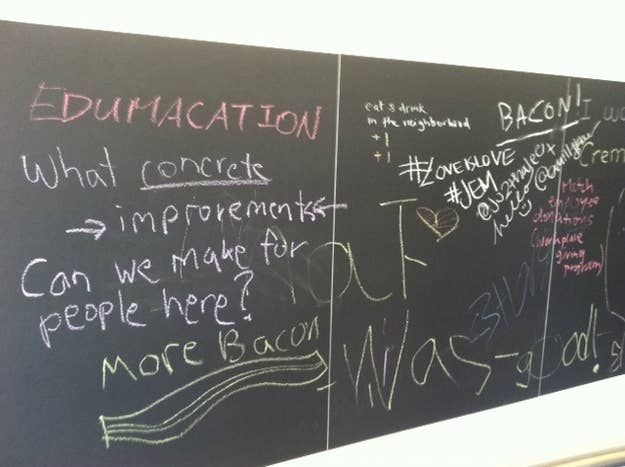 EDUMACATION
What concrete
→ improvements ←
Can we make for
people here?
More Bacon
eat & drink
in the neighborhood
+1
+1
BACON!
#LOVEISLOVE
#JEM
hello
I
Crem
Match
employee
donations
(workplace
giving
program)
Was-good!